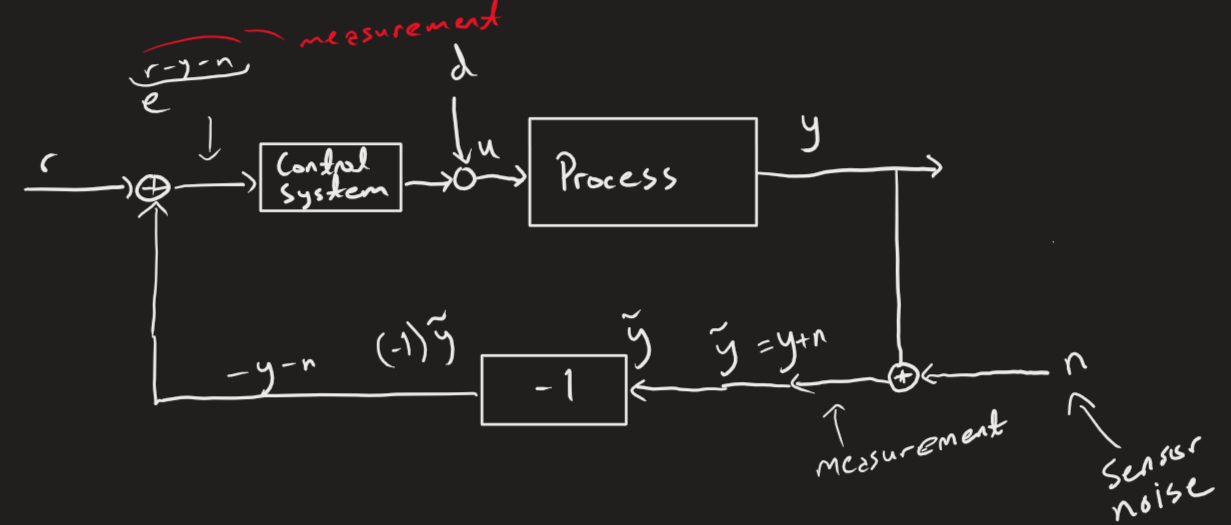 measurement
r-y-n
e
d
r
+
Control
system
u
Process
y
-y-n
(-1)ỹ
-1
ỹ
ỹ = y+n
+
n
measurement
sensor
noise